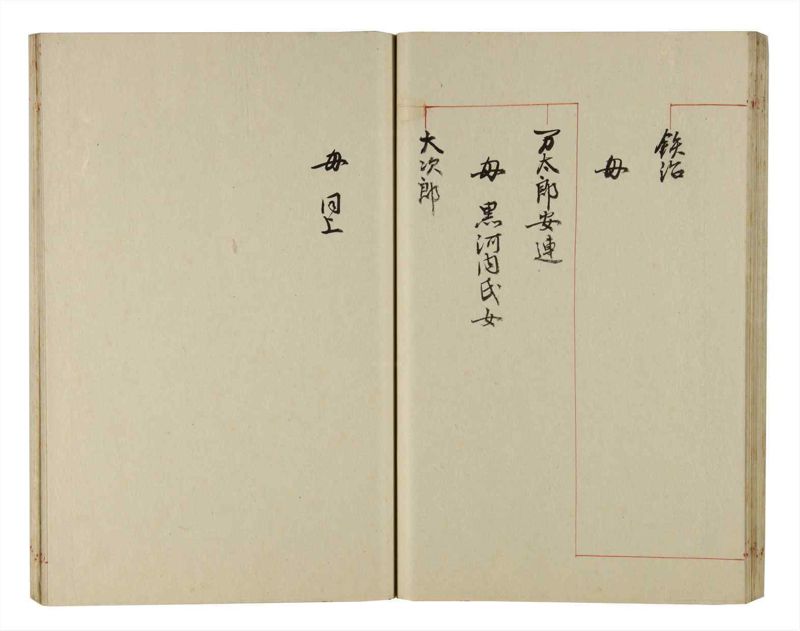 鉄治
母
万太郎安連
母 黒河内氏女
大次郎
母 同上